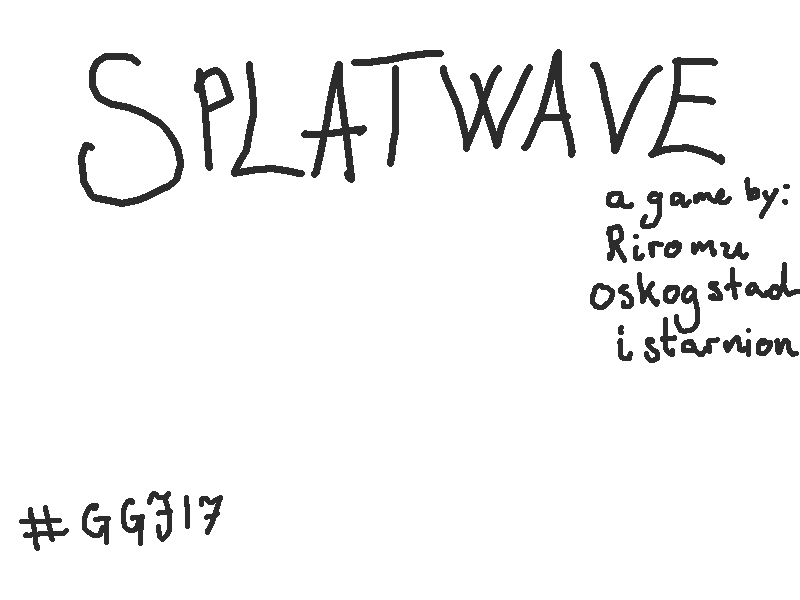 SPLATWAVE
a game by:
Riromu
oskogstad
istarnion
#GGJ17